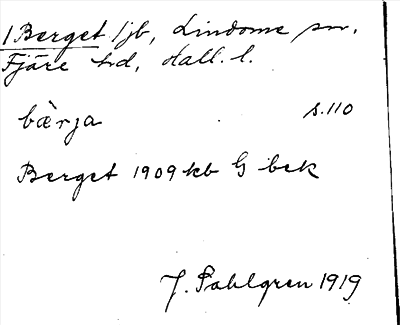 1 Berget ljb, Lindome sn,
Fjäre hd, Hall. l.
bæ̀rja s.110
Berget 1909 kb G bek
J. Sahlgren 1919